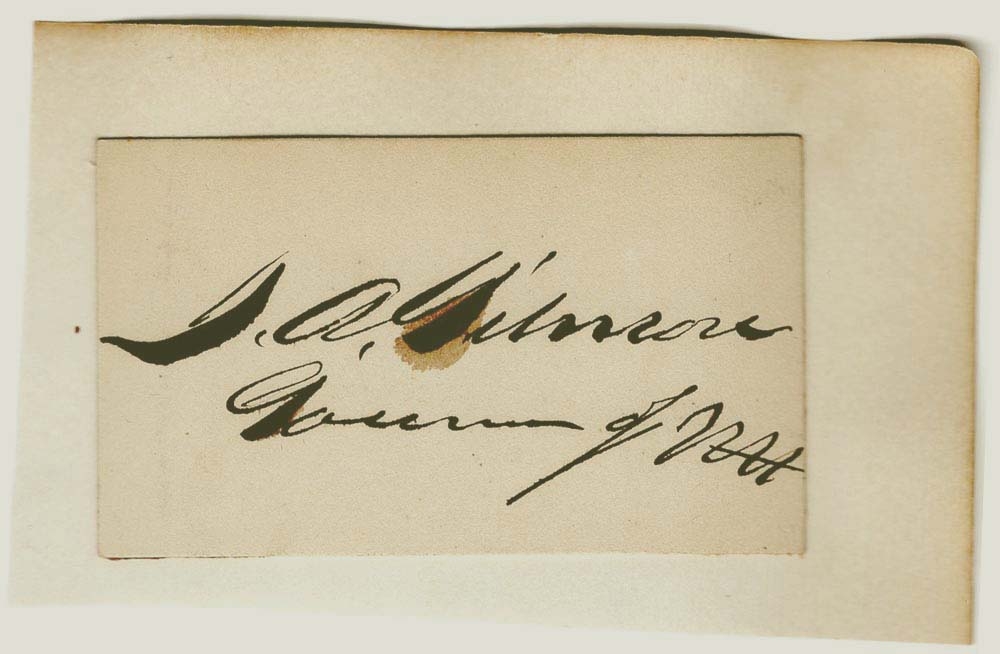 J. A. Gilmore
Governor of N H